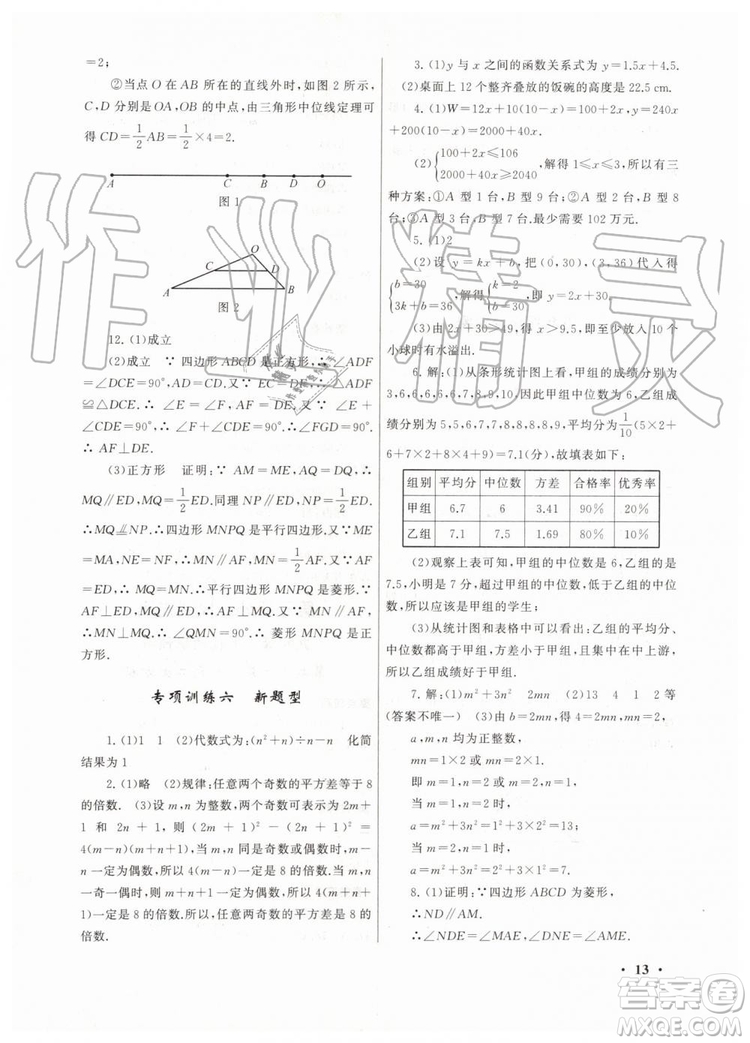 =2;
②当点 O 在 AB 所在的直线外时,如图 2 所示,
C,D 分别是 OA,OB 的中点,由三角形中位线定理可
得 CD=1/2 AB=1/2×4=2.
A C B D O
图 1
O
C D
A B
图 2
12. (1)成立
(2)成立 ∵ 四边形 ABCD 是正方形,∴ ∠ADF
=∠DCE=90°,AD=CD. 又∵ EC=DF,∴ △ADF
≌△DCE. ∴ ∠E=∠F,∠DAF=∠CDE. ∵ ∠E+
∠CDE=90°,∴ ∠F+∠CDE=90°. ∴ ∠FGD=90°.
∴ AF⊥DE.
(3)正方形 证明:∵ AM=ME,AQ=DQ,∴
MQ∥ED,MQ=1/2 ED. 同理 NP∥ED,NP=1/2 ED.
∴ MQ⫽NP. ∴ 四边形 MNPQ 是平行四边形. 又∵ME
=MA,NE=NF,∴ MN=1/2 AF. 又∵ AF=ED,∴
MQ=MN. ∴ 平行四边形 MNPQ 是菱形. ∵
AF⊥ED,MQ∥ED,∴ AF⊥MQ. 又∵ MN∥AF,
∴ MN⊥MQ. ∴ ∠QMN=90°. ∴ 菱形 MNPQ 是正
方形.
专项训练六 新题型
1. (1)1 1 (2)代数式为:(n²+n)÷n-n 化简
结果为 1
2. (1)略 (2)规律:任意两个奇数的平方差等于 8
的倍数. (3)设 m,n 为整数,两个奇数可表示为 2m +
1 和 2n + 1,则 (2m + 1)² - (2n + 1)² =
4(m-n)(m+n+1). 当 m,n 同是奇数或偶数时,m-
n 一定为偶数,所以 4(m-n)一定是 8 的倍数;当 m,n
一奇一偶时,则 m+n+1 一定为偶数,所以 4(m+n+
1)一定是 8 的倍数. 所以,任意两奇数的平方差是 8 的
倍数.
3. (1)y 与 x 之间的函数关系式为 y=1.5x+4.5.
(2)桌面上 12 个整齐叠放的饭碗的高度是 22.5 cm.
4. (1)W=12x+10(10-x)=100+2x,y=240x
+200(10-x)=2000+40x.
(2){100+2x≤106
2000+40x≥2040 ,解得 1≤x≤3,所以有三
种方案:①A 型 1 台,B 型 9 台;②A 型 2 台,B 型 8
台;③A 型 3 台,B 型 7 台. 最少需要 102 万元.
5. (1)2
(2)设 y=kx+b,把(0,30),(3,36)代入得
{b=30
3k+b=36 ,解得{k=2
b=30 ,即 y=2x+30.
(3)由 2x+30>49,得 x>9.5,即至少放入 10 个
小球时有水溢出.
6. 解:(1)从条形统计图上看,甲组的成绩分别为
3,6,6,6,6,6,7,8,9,10,因此,甲组中位数为 6,乙组成
绩分别为 5,5,6,7,7,8,8,8,8,9,平均分为 1/10(5×2+
6+7×2+8×4+9)=7.1(分),故填表如下:
组别 平均分 中位数 方差 合格率 优秀率
甲组 6.7 6 3.41 90% 20%
乙组 7.1 7.5 1.69 80% 10%
(2)观察上表可知,甲组的中位数为 6,乙组的中位数是
7.5,小明是 7 分,超过甲组的中位数,低于乙组的中位
数,所以应该是甲组的学生;
(3)从统计图和表格中可以看出:乙组的平均分、
中位数都高于甲组,方差小于甲组,且集中在中上游,
所以乙组成绩好于甲组.
7. 解:(1)m²+3n² 2mn (2)13 4 1 2 等
(答案不唯一) (3)由 b=2mn,得 4=2mn,
a,m,n 均为正整数,
mn=1×2 或 2×1,
即 m=1,n=2 或 m=2,n=1,
当 m=1,n=2 时,
a=m²+3n²=1²+3×2²=13;
当 m=2,n=1 时,
a=m²+3n²=2²+3×1²=7.
8. (1)证明:∵ 四边形 ABCD 为菱形,
∴ND∥AM.
∴∠NDE=∠MAE,∠DNE=∠AME.
• 13 •
作业精灵
答案圈
MXQE.COM